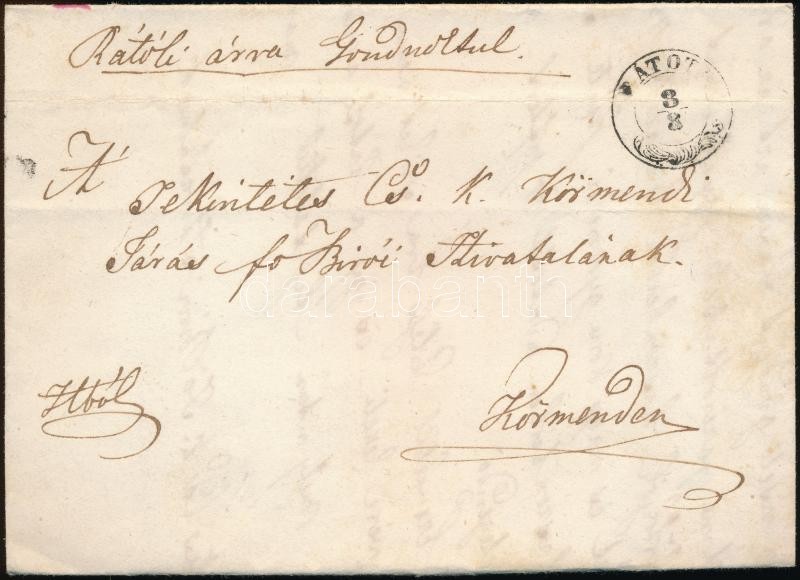 Rátóti árva Gondnoktul.
RÁTOT
3/8
A'
Tekintetes Cs. K. Körmendi
Járás fo Birói Hivatalának.
darabanth
Hból
Körmenden